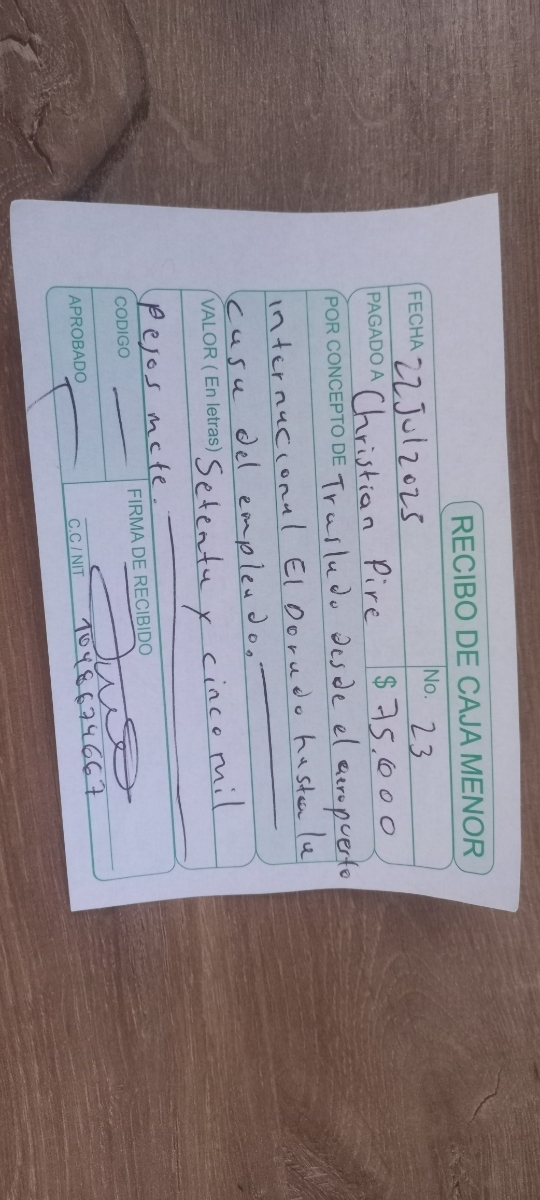 RECIBO DE CAJA MENOR
FECHA 22 Jul 2025 No. 23
PAGADO A Christian Pire $ 75.000
POR CONCEPTO DE Traslado desde el aeropuerto
internacional El Dorado hasta la
casa del empleado.
VALOR ( En letras) Setenta y cinco mil
pesos mcte.
CODIGO
FIRMA DE RECIBIDO
APROBADO
C.C / NIT 1048674667